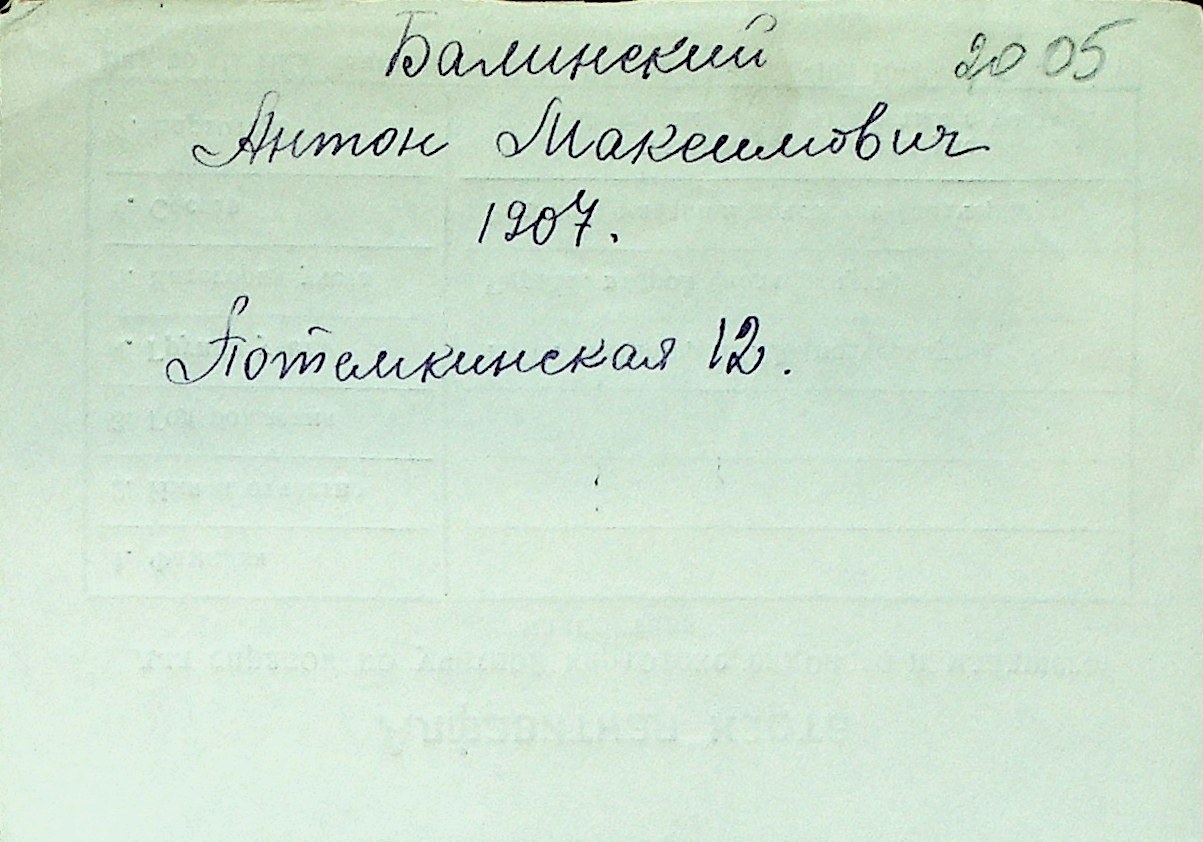 Балинский 20 05
Антон Максимович
1907.
Потемкинская 12.